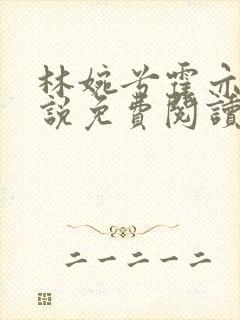 林婉兮霍亦
說免費閱讀
二一二一二